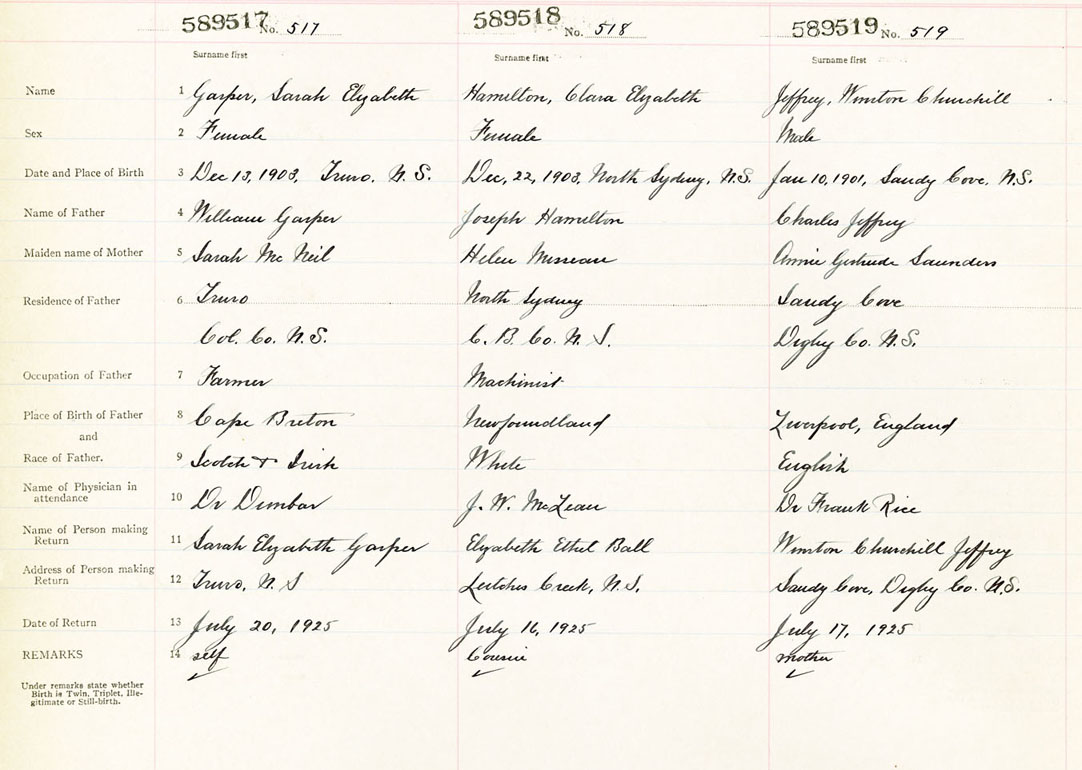 589517 No. 517 589518 No. 518 589519 No. 519
Surname first Surname first Surname first
Name 1 Gasper, Sarah Elizabeth Hamilton, Clara Elizabeth Jeffrey, Winston Churchill
Sex 2 Female Female Male
Date and Place of Birth 3 Dec 13, 1903, Truro, N.S. Dec, 22, 1903, North Sydney, N.S. Jan 10, 1901, Sandy Cove, N.S.
Name of Father 4 William Gasper Joseph Hamilton Charles Jeffrey
Maiden name of Mother 5 Sarah Mc Neil Helen Annie Gertrude Saunders
Residence of Father 6 Truro North Sydney Sandy Cove
Col. Co. N.S. C. B. Co. N. S. Digby Co. N.S.
Occupation of Father 7 Farmer Machinist
Place of Birth of Father 8 Cape Breton Newfoundland Liverpool, England
and
Race of Father. 9 Scotch & Irish White English
Name of Physician in
attendance 10 Dr Dunbar J. W. McLean Dr Frank Rice
Name of Person making
Return 11 Sarah Elizabeth Gasper Elizabeth Ethel Ball Winston Churchill Jeffrey
Address of Person making
Return 12 Truro, N. S Leitches Creek, N.S. Sandy Cove, Digby Co. N.S.
Date of Return 13 July 20, 1925 July 16, 1925 July 17, 1925
REMARKS 14 self Cousin mother
Under remarks state whether
Birth is Twin, Triplet, Ille-
gitimate or Still-birth.